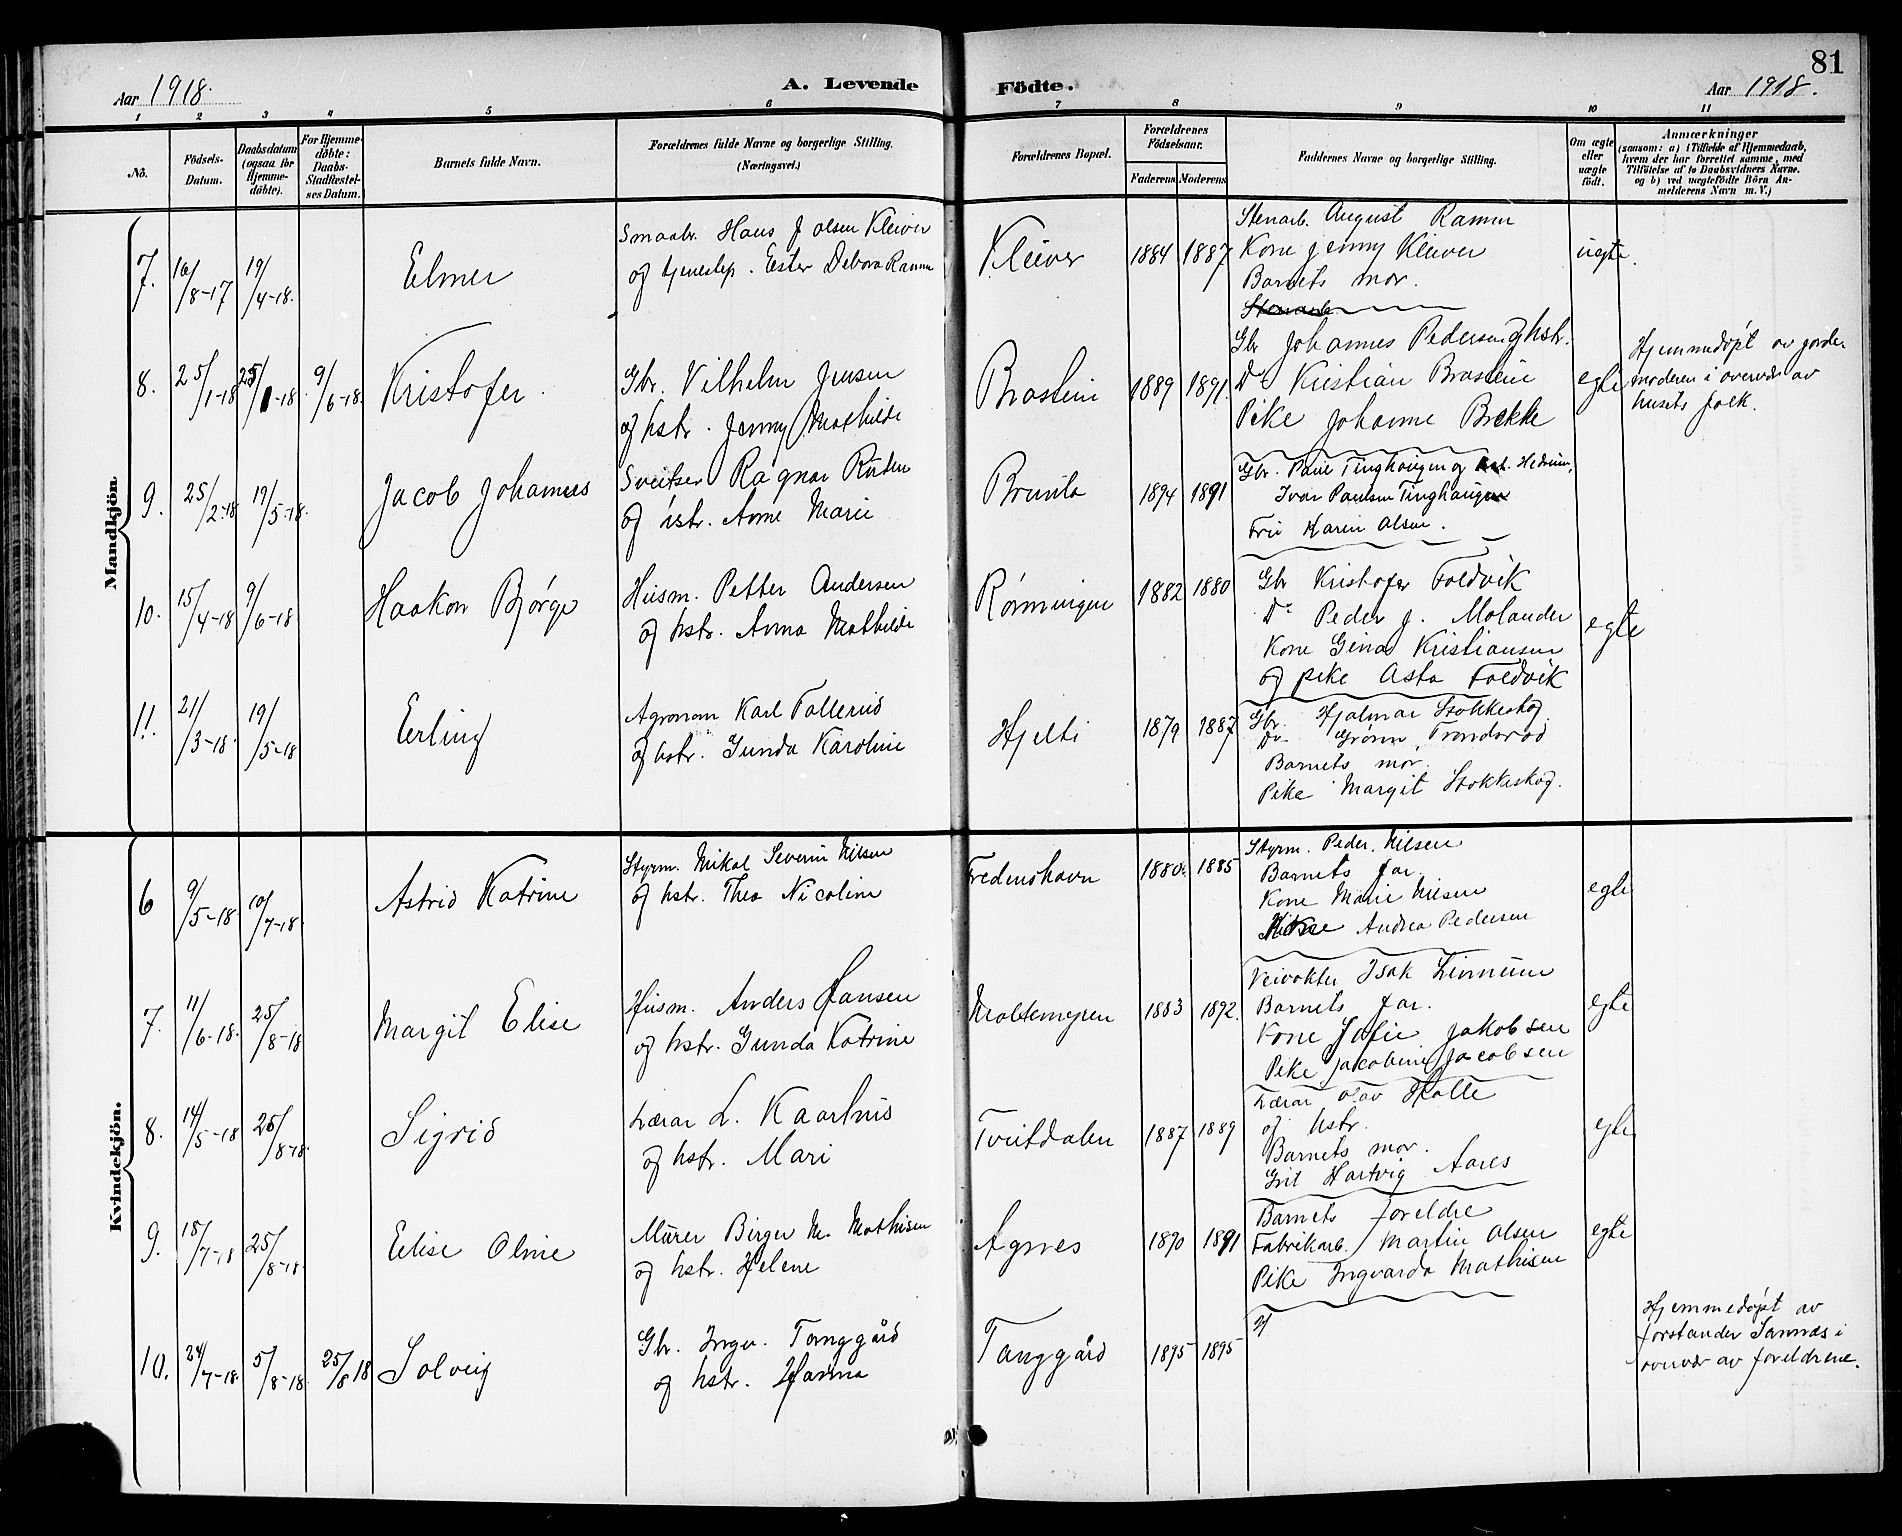 81
Aar 1918.
A. Levende Födte.
Aar 1918.
1 2 3 4 5 6 7 8 9 10 11
No.
Födsels-Datum.
Daabsdatum (ogsaa for Hjemme-döbte).
For Hjemme-döbte: Daabs-Stadfæstel-ses Datum.
Barnets fulde Navn.
Forældrenes fulde Navne og borgerlige Stilling.
(Næringsvei.)
Forældrenes Bopæl.
Forældrenes Födselsaar.
Faderens Moderens
Faddernes Navne og borgerlige Stilling.
Om ægte eller uægte födt.
Anmærkninger
(saasom: a) i Tilfælde af Hjemmedaab,
hvem der har forrettet samme, med
Tilföielse af to Daabsvidners Navne.
og b) ved uægtefödte Börn An-
melderens Navn m. V.)
Mandkjön.
7. 16/8-17 19/4-18. Elmer
Smaabr. Hans J Olsen Kleiver
og tjenestep. Ester Debora Ramm
Kleiver 1884 1887
Stenarb. August Ramm
Kone Jenny Kleiver
Barnets mor.
Stenarb
uegte.
8. 25/1-18 25/1-18 9/6-18. Kristofer.
Gbr. Vilhelm Jensen
og hstr. Jenny Mathilde
Brasteini 1889 1891.
Gbr Johannes Pedersen og hstr.
Do Kristian Brasteini
Pike Johanne Brekke
egte
Hjemmedøpt av jorde-
moderen i overvær av
husets folk.
9. 25/2-18 19/5-18. Jacob Johannes
Sveitser Ragnar Ruden
og hstr. Anne Marie
Brunla 1894 1891
Gbr. Paul Tinghaugen og hst. Hedrum,
Ivar Paulsen Tinghaugen
Fru Karin Olsen.
10. 15/4-18 9/6-18 Haakon Bjørge
Husm. Petter Andersen
og hstr. Anna Mathilde
Rønningen 1882 1880
Gbr Kristofer Foldvik
Do Peder J. Molander
Kone Gina Kristiansen
og pike Asta Foldvik
egte
11. 21/3-18. 19/5-18 Erling
Agronom Karl Tollerud
og hstr. Gunda Karoline
Hjelti 1879 1887
Gbr. Hjalmar Stokkeskog
Do Grønn Trondsrød
Barnets mor.
Pike Margit Stokkeskog.
Kvindekjön.
6 9/5-18 10/7-18. Astrid Katrine
Styrm. Mikal Severin Nilsen
og hstr. Thea Nicoline
Fredenshavn 1880. 1885
Styrm. Peder Nilsen
Barnets far.
Kone Marie Nilsen
Andrea Pedersen
egte
7. 11/6-18. 25/8-18 Margit Elise
Husm. Anders Hansen
og hstr. Gunda Katrine
Moltemyren 1883 1892.
Veivokter Isak Linnum
Barnets far.
Kone Sofie Jakobsen
Pike Jakobine Jacobsen
egte
8. 14/5-18 25/8-18. Sigrid
Lærar L. Kaarhus
og hstr. Mari
Tveitdalen 1887 1889
Lærar Olav Holte
og hstr.
Barnets mor.
Grit Hartvig Aares
egte
9. 18/7-18 25/8-18. Elise Oline
Murer Birger M. Mathisen
og hstr. Helene
Agnes 1890 1891
Barnets foreldre
Fabrikarb. Martin Olsen
Pike Ingvarda Mathisen
egte
10. 24/7-18. 5/8-18. 25/8 18 Solveig
Gbr. Ingv. Tanggård
og hstr. Hanna
Tanggård 1895 1895
Hjemmedøpt av
forstander Sannæs i
overvær av foreldrene.